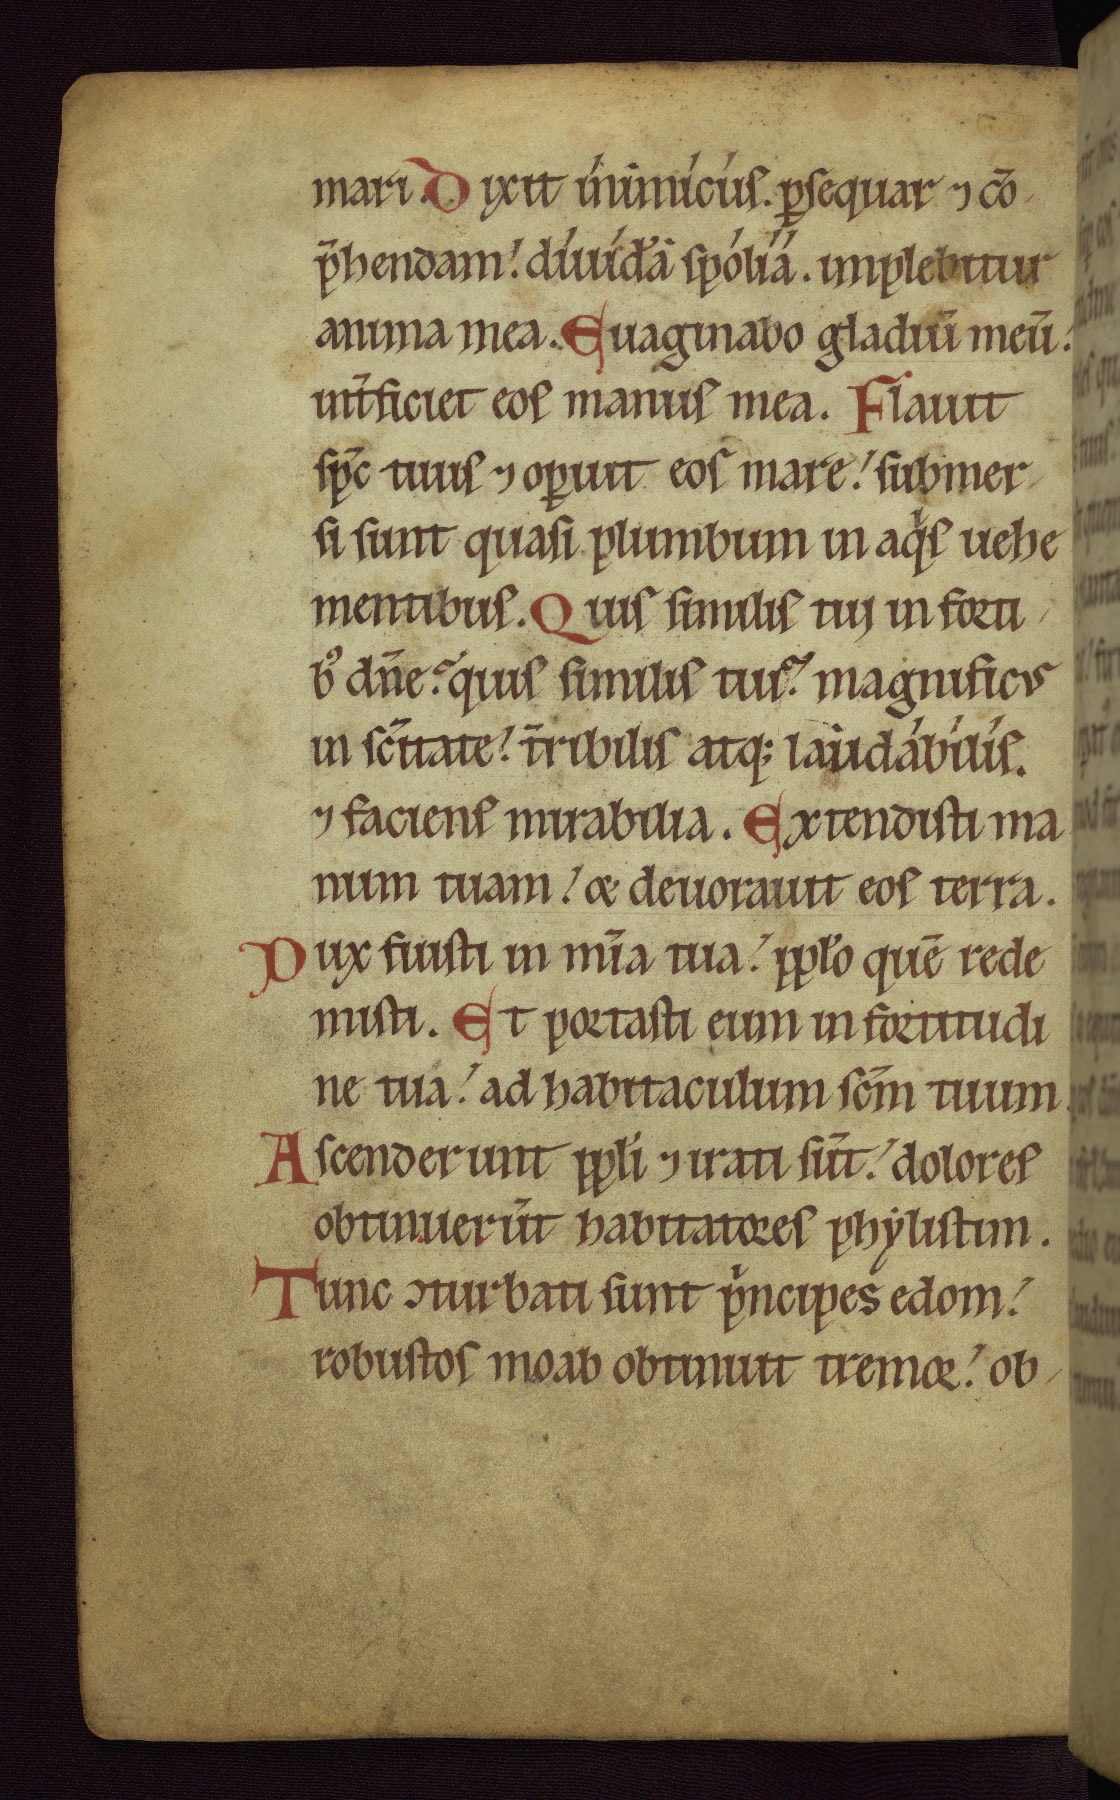 mari. Dixit inimicus. ꝑsequar ⁊ cō-
p̄hendam! diuidā spolia. implebitur
anima mea. Euaginabo gladiū meū!
int̄ficiet eos manus mea. Flauit
sp̄c tuus ⁊ oꝑuit eos mare! submer-
si sunt quasi plumbum in aqͥs uehe
mentibus. Quis similis tuj in forti-
bꝰ dn̄e? quis similis tui? magnificus
in sc̄itate! t̄ribilis atq; laudabilis.
⁊ faciens mirabilia. Extendisti ma
num tuam! & deuorauit eos terra.
Dux fuisti in mīa tua! pplo quē rede
misti. Et portasti eum in fortitudi
ne tua! ad habitaculum sc̄m tuum.
Ascenderunt ppli ⁊ irati sūt! dolores
obtinuerūt habitatores phẏlistim.
Tunc ꝯturbati sunt pͥncipes edom!
robustos moab obtinuit tremor! ob-